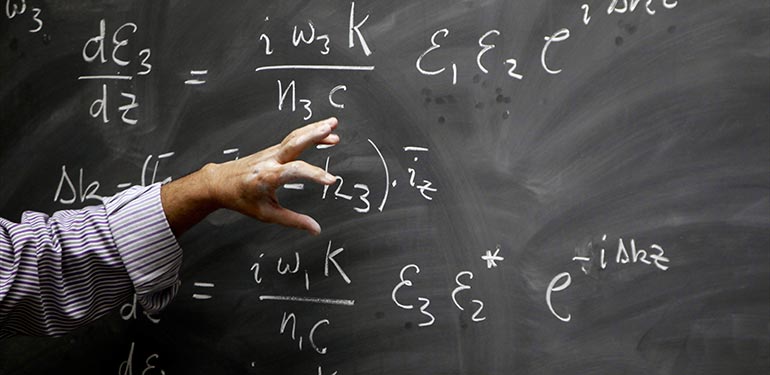 ω₃
dℰ₃/dz = i ω₃ K / n₃ c ℰ₁ ℰ₂ e^{iΔkz}
Δk = ( k̄₃)·ī_z
dz = i ω₁ K / n₁ c ℰ₃ ℰ₂* e^{-iΔkz}
dℰ i K